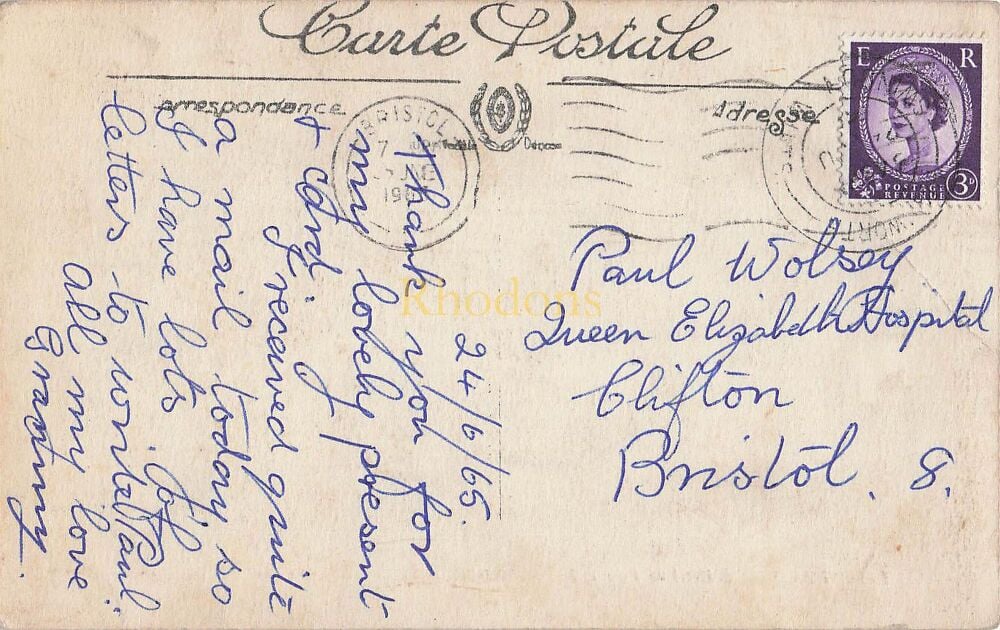 Carte Postale
Correspondance
Adresse
E R
POSTAGE
REVENUE
3D
BRISTOL
Rhodons
24/6/65.
Thank you for
my lovely present
& card. I received quite
a mail today so
I have lots of
letters to write Paul
All my love
Granny.
Paul Wolsey
Queen Elizabeth Hospital
Clifton
Bristol. 8.